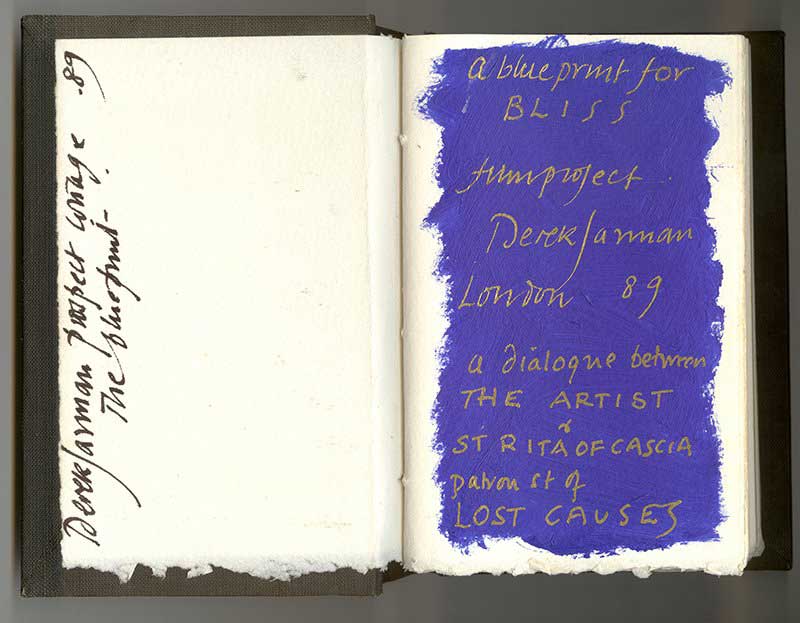 Derek Jarman prospect cottage .89
The blueprint -
a blueprint for
BLISS
film project .
Derek Jarman
London 89
a dialogue between
THE ARTIST
&
ST RITA OF CASCIA
patron st of
LOST CAUSES